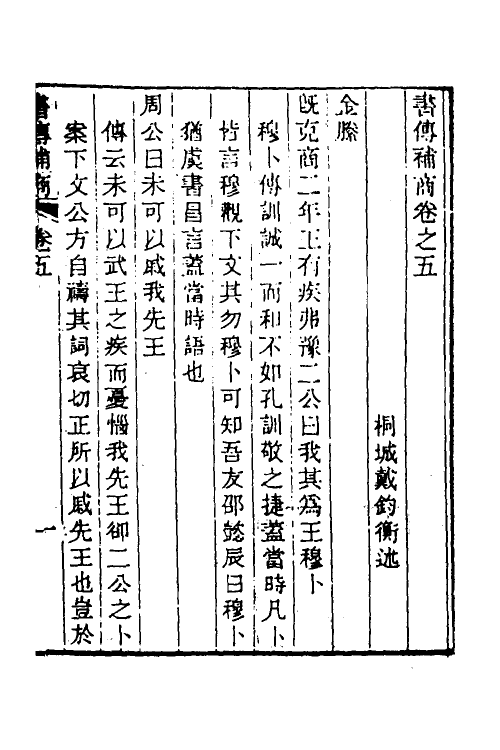 書傳補商卷之五
桐城戴鈞衡述
金縢
既克商二年王有疾弗豫二公曰我其爲王穆卜
穆卜傳訓誠一而和不如孔訓敬之捷蓋當時凡卜
皆言穆觀下文其勿穆卜可知吾友邵懿辰曰穆卜
猶虞書昌言蓋當時語也
周公曰未可以戚我先王
傳云未可以武王之疾而憂惱我先王卻二公之卜
案下文公方自禱其詞哀切正所以戚先王也豈於
書傳補商 卷五 一